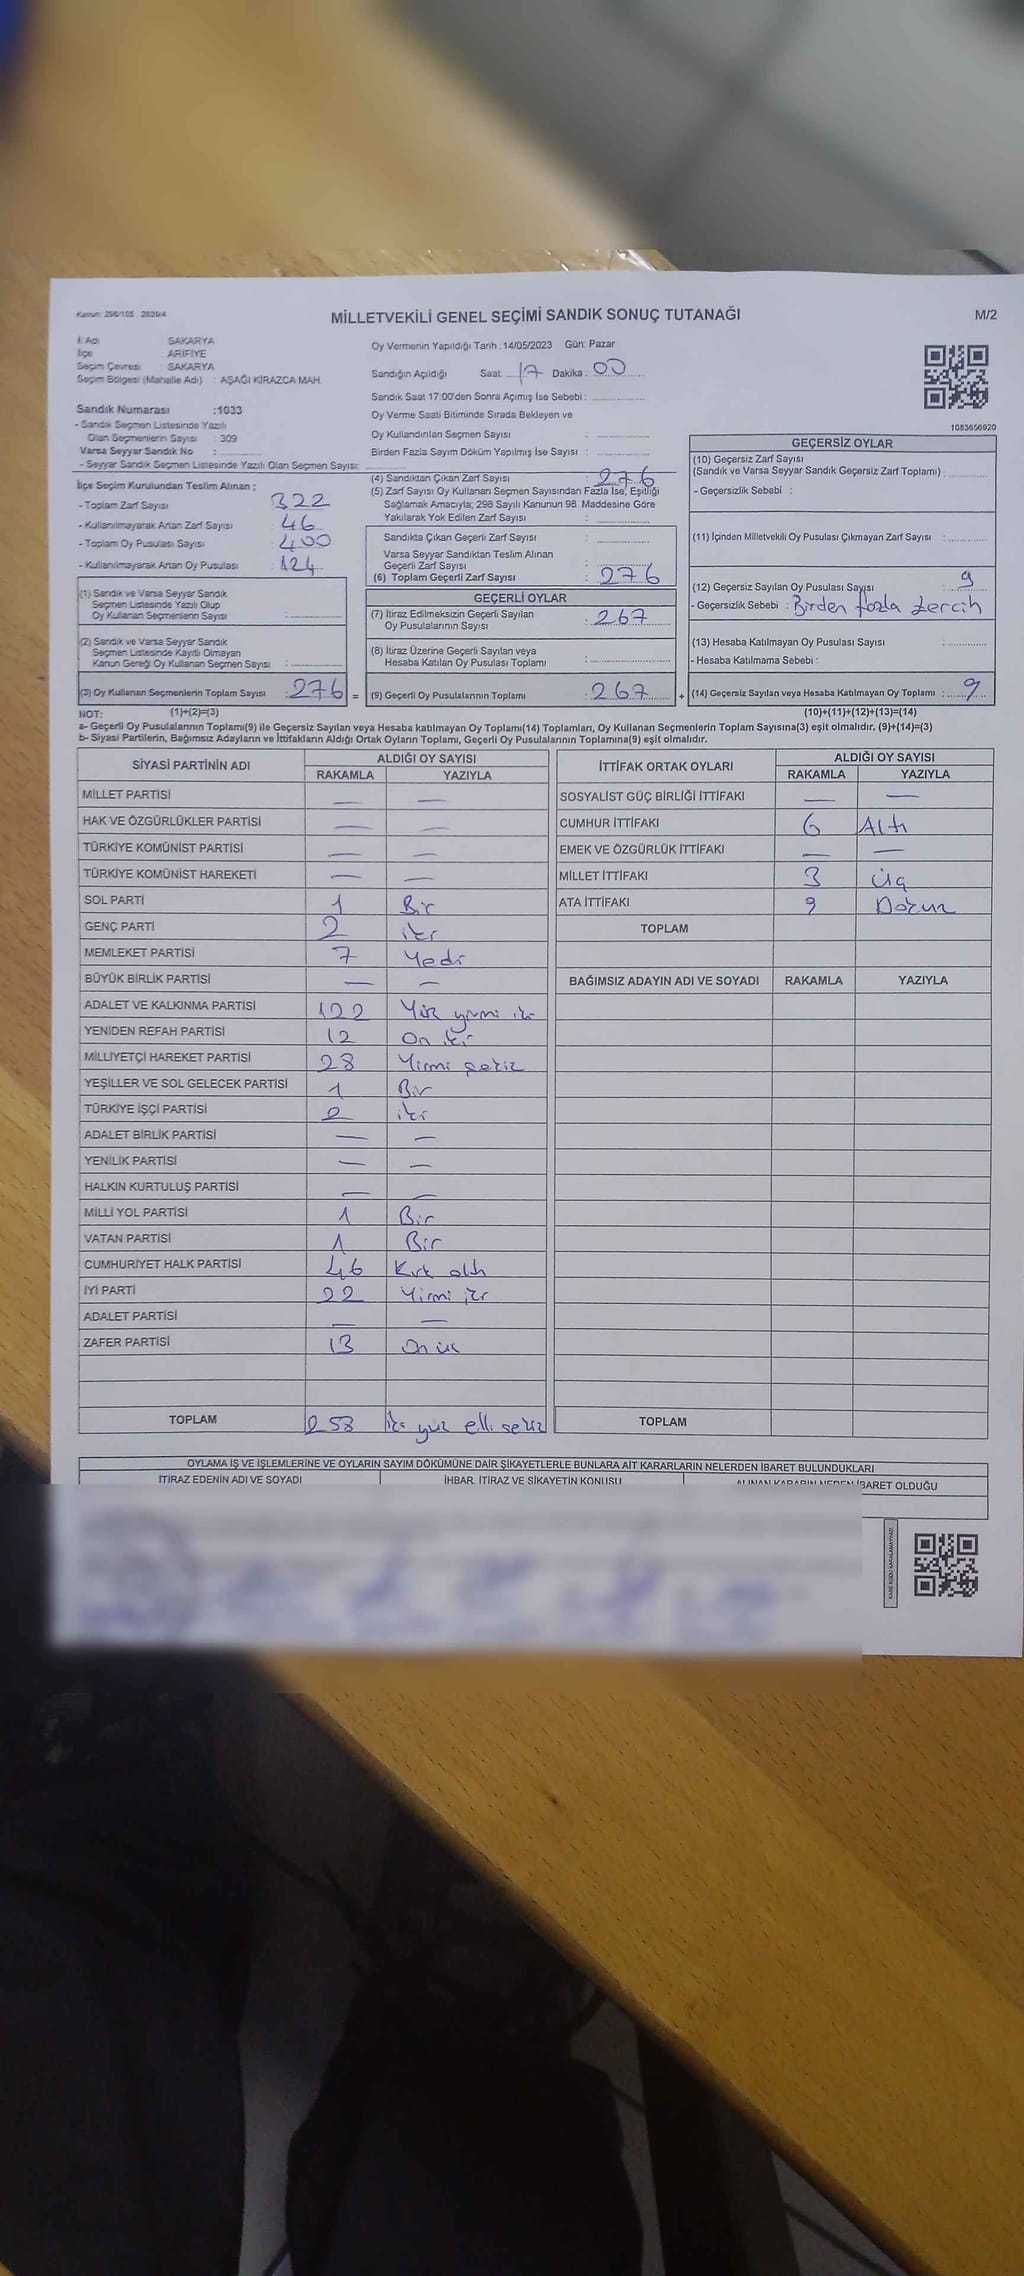 Kanun: 298/105 , 2839/4
MİLLETVEKİLİ GENEL SEÇİMİ SANDIK SONUÇ TUTANAĞI
M/2
İl Adı : SAKARYA
İlçe : ARİFİYE
Seçim Çevresi : SAKARYA
Seçim Bölgesi (Mahalle Adı) : AŞAĞI KİRAZCA MAH.
Sandık Numarası :1033
- Sandık Seçmen Listesinde Yazılı
Olan Seçmenlerin Sayısı : 309
Varsa Seyyar Sandık No :
- Seyyar Sandık Seçmen Listesinde Yazılı Olan Seçmen Sayısı:
Oy Vermenin Yapıldığı Tarih :14/05/2023 Gün: Pazar
Sandığın Açıldığı Saat: 17 Dakika: 00
Sandık Saat 17:00'den Sonra Açımış İse Sebebi :
Oy Verme Saati Bitiminde Sırada Bekleyen ve
Oy Kullandırılan Seçmen Sayısı :
Birden Fazla Sayım Döküm Yapılmış İse Sayısı :
1083656920
İlçe Seçim Kurulundan Teslim Alınan :
- Toplam Zarf Sayısı : 322
- Kullanılmayarak Artan Zarf Sayısı : 46
- Toplam Oy Pusulası Sayısı : 400
- Kullanılmayarak Artan Oy Pusulası : 124
(1) Sandık ve Varsa Seyyar Sandık
Seçmen Listesinde Yazılı Olup
Oy Kullanan Seçmenlerin Sayısı :
(2) Sandık ve Varsa Seyyar Sandık
Seçmen Listesinde Kayıtlı Olmayan
Kanun Gereği Oy Kullanan Seçmen Sayısı :
(3) Oy Kullanan Seçmenlerin Toplam Sayısı : 276 =
(4) Sandıktan Çıkan Zarf Sayısı : 276
(5) Zarf Sayısı Oy Kullanan Seçmen Sayısından Fazla İse, Eşitliği
Sağlamak Amacıyla; 298 Sayılı Kanunun 98. Maddesine Göre
Yakılarak Yok Edilen Zarf Sayısı :
Sandıkta Çıkan Geçerli Zarf Sayısı :
Varsa Seyyar Sandıktan Teslim Alınan
Geçerli Zarf Sayısı :
(6) Toplam Geçerli Zarf Sayısı : 276
GEÇERLİ OYLAR
(7) İtiraz Edilmeksizin Geçerli Sayılan
Oy Pusulalarının Sayısı : 267
(8) İtiraz Üzerine Geçerli Sayılan veya
Hesaba Katılan Oy Pusulası Toplamı :
(9) Geçerli Oy Pusulalarının Toplamı : 267 +
GEÇERSİZ OYLAR
(10) Geçersiz Zarf Sayısı
(Sandık ve Varsa Seyyar Sandık Geçersiz Zarf Toplamı) :
- Geçersizlik Sebebi :
(11) İçinden Milletvekili Oy Pusulası Çıkmayan Zarf Sayısı :
(12) Geçersiz Sayılan Oy Pusulası Sayısı : 9
- Geçersizlik Sebebi : Birden fazla tercih
(13) Hesaba Katılmayan Oy Pusulası Sayısı :
- Hesaba Katılmama Sebebi :
(14) Geçersiz Sayılan veya Hesaba Katılmayan Oy Toplamı : 9
NOT: (1)+(2)=(3)
(10)+(11)+(12)+(13)=(14)
a- Geçerli Oy Pusulalarının Toplamı(9) ile Geçersiz Sayılan veya Hesaba katılmayan Oy Toplamı(14) Toplamları, Oy Kullanan Seçmenlerin Toplam Sayısına(3) eşit olmalıdır. (9)+(14)=(3)
b- Siyasi Partilerin, Bağımsız Adayların ve İttifakların Aldığı Ortak Oyların Toplamı, Geçerli Oy Pusulalarının Toplamına(9) eşit olmalıdır.
SİYASİ PARTİNİN ADI ALDIĞI OY SAYISI
RAKAMLA YAZIYLA
MİLLET PARTİSİ — —
HAK VE ÖZGÜRLÜKLER PARTİSİ — —
TÜRKİYE KOMÜNİST PARTİSİ — —
TÜRKİYE KOMÜNİST HAREKETİ — —
SOL PARTİ 1 Bir
GENÇ PARTİ 2 iki
MEMLEKET PARTİSİ 7 Yedi
BÜYÜK BİRLİK PARTİSİ — —
ADALET VE KALKINMA PARTİSİ 122 Yüz yirmi iki
YENİDEN REFAH PARTİSİ 12 On iki
MİLLİYETÇİ HAREKET PARTİSİ 28 Yirmi sekiz
YEŞİLLER VE SOL GELECEK PARTİSİ 1 Bir
TÜRKİYE İŞÇİ PARTİSİ 2 iki
ADALET BİRLİK PARTİSİ — —
YENİLİK PARTİSİ — —
HALKIN KURTULUŞ PARTİSİ — —
MİLLİ YOL PARTİSİ 1 Bir
VATAN PARTİSİ 1 Bir
CUMHURİYET HALK PARTİSİ 46 Kırk altı
İYİ PARTİ 22 Yirmi iki
ADALET PARTİSİ — —
ZAFER PARTİSİ 13 On üç
TOPLAM 258 iki yüz elli sekiz
İTTİFAK ORTAK OYLARI ALDIĞI OY SAYISI
RAKAMLA YAZIYLA
SOSYALİST GÜÇ BİRLİĞİ İTTİFAKI — —
CUMHUR İTTİFAKI 6 Altı
EMEK VE ÖZGÜRLÜK İTTİFAKI — —
MİLLET İTTİFAKI 3 Üç
ATA İTTİFAKI 9 Dokuz
TOPLAM
BAĞIMSIZ ADAYIN ADI VE SOYADI RAKAMLA YAZIYLA
TOPLAM
OYLAMA İŞ VE İŞLEMLERİNE VE OYLARIN SAYIM DÖKÜMÜNE DAİR ŞİKAYETLERLE BUNLARA AİT KARARLARIN NELERDEN İBARET BULUNDUKLARI
İTİRAZ EDENİN ADI VE SOYADI İHBAR, İTİRAZ VE ŞİKAYETİN KONUSU ALINAN KARARIN NEDEN İBARET OLDUĞU